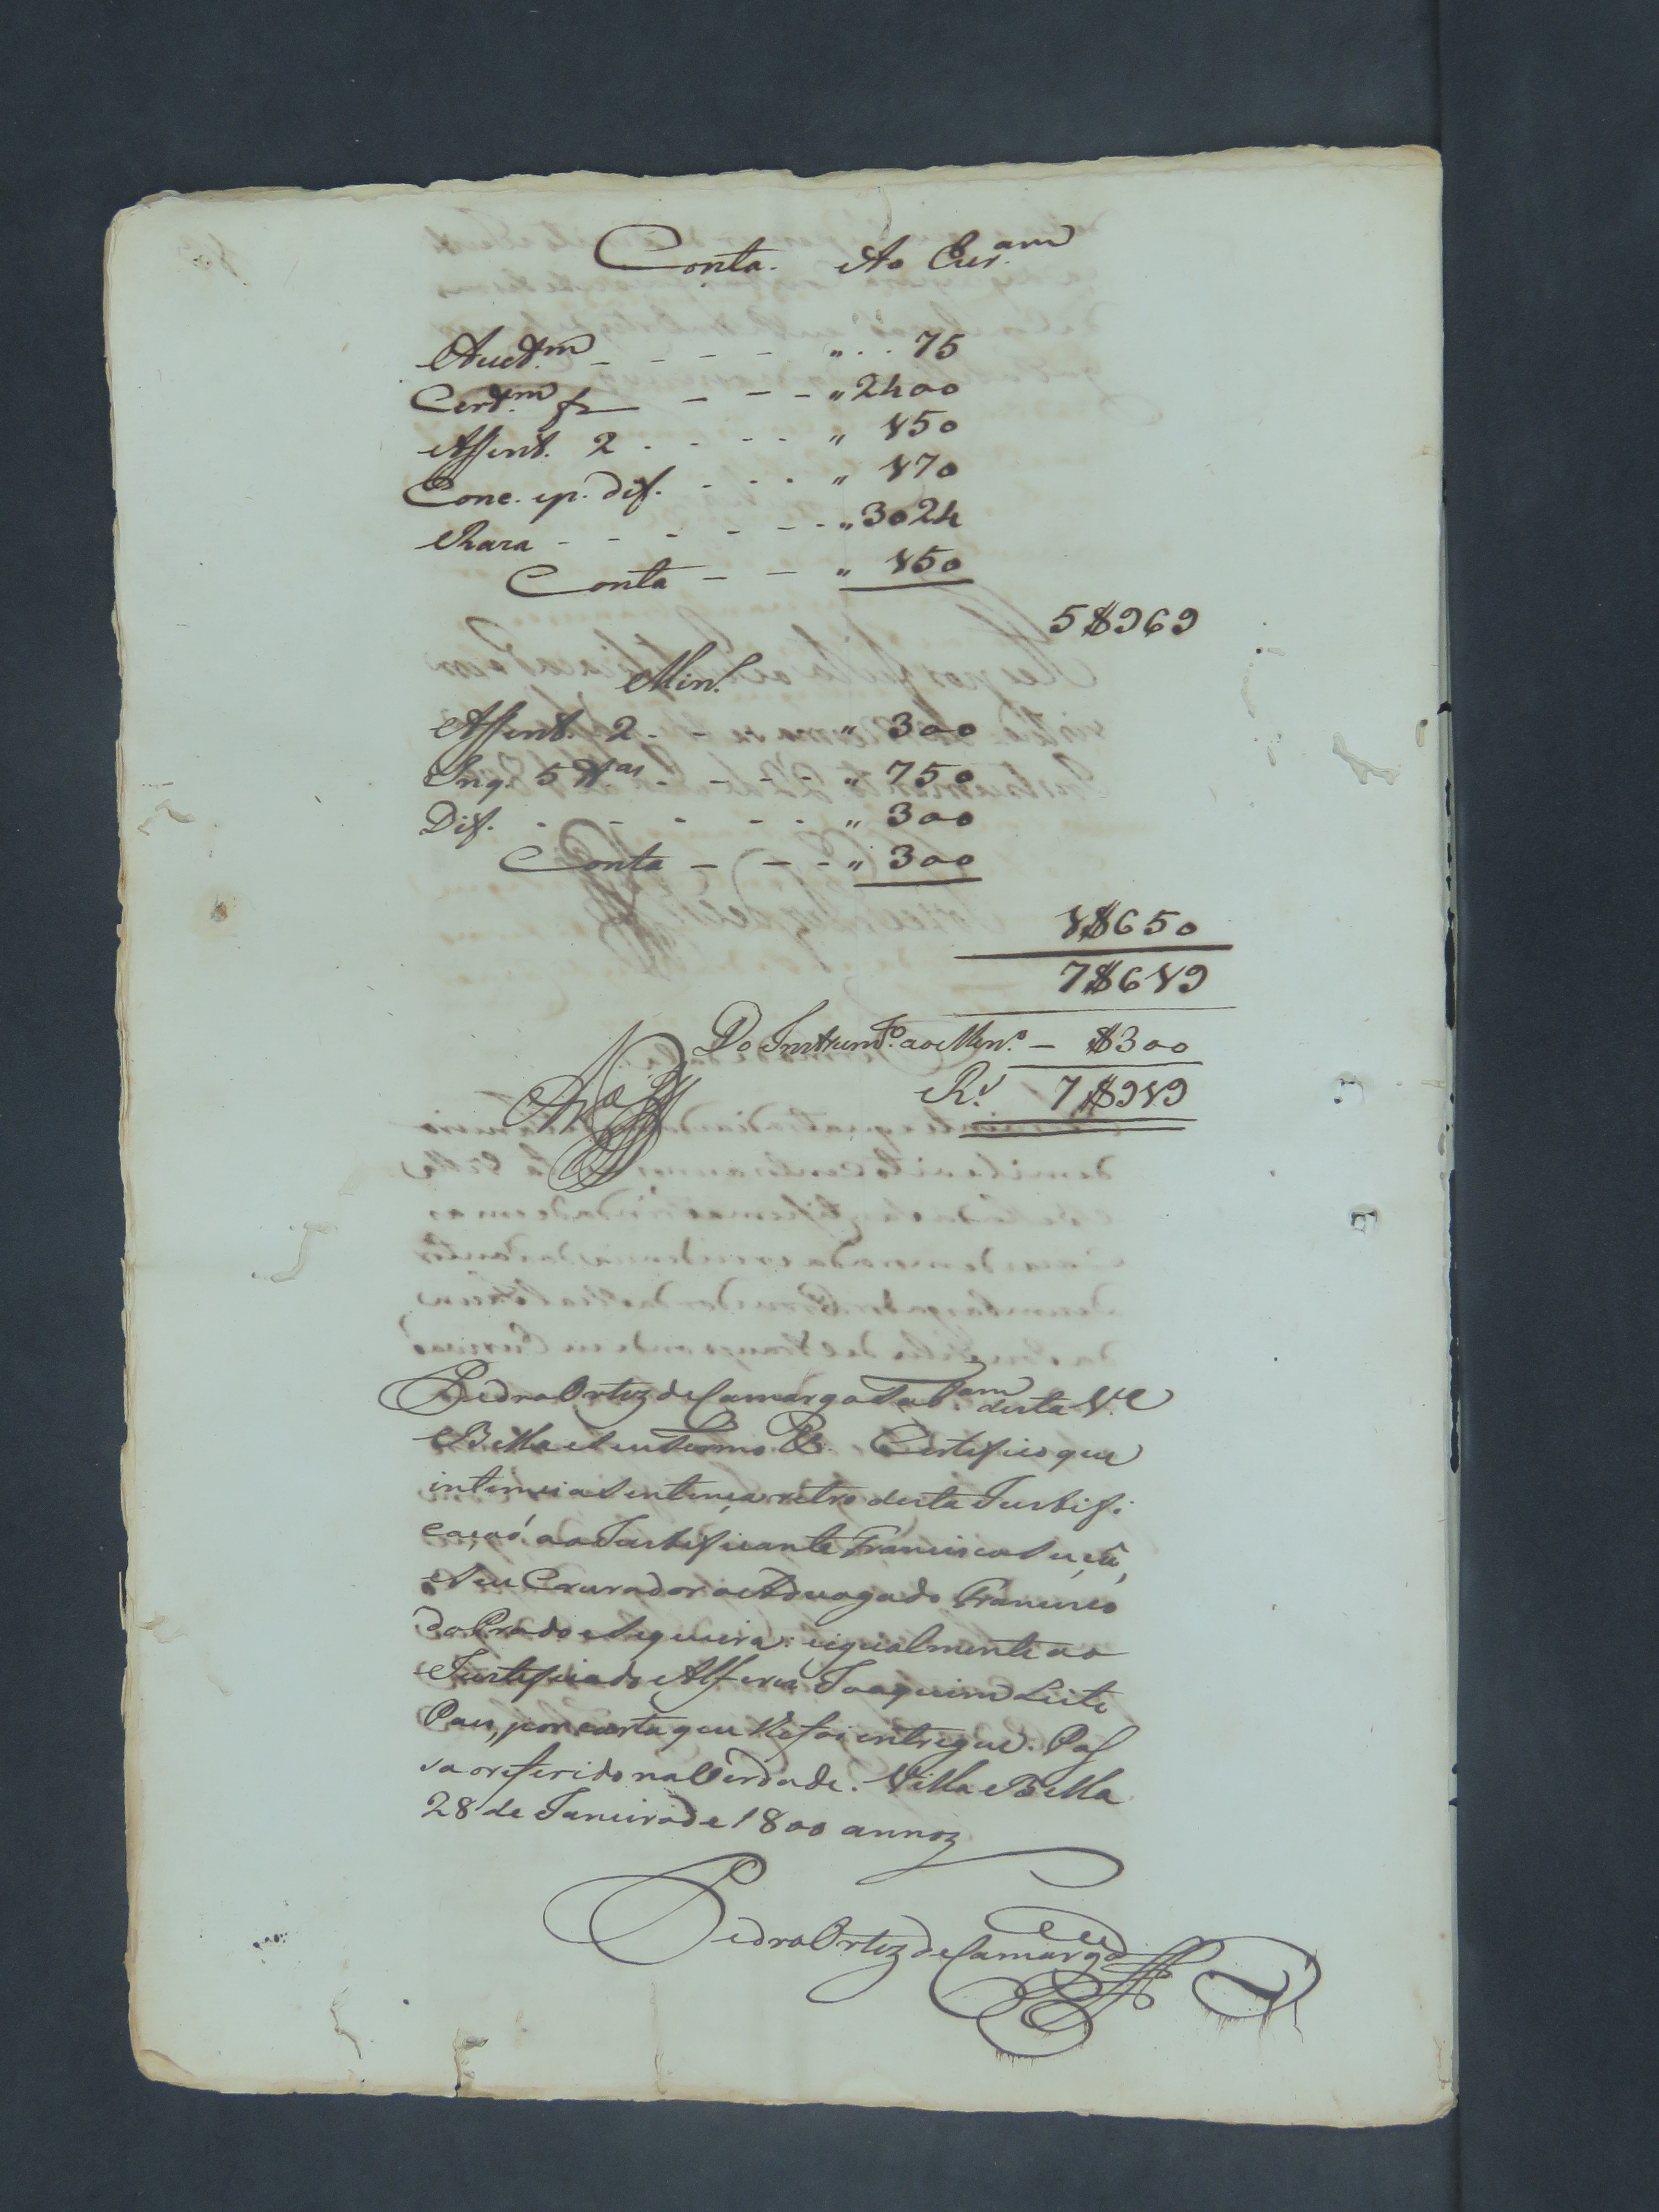 Conta. Ao Escr.am
Auct.m - - - - " . . 75
Cert.m fz - - - " 2400
Assent. 2 . - - - " 150
Conc. ep. dif. - - . " 170
Raza - - - - - - " 3024
Conta - - " 150
5$969
Min.
Assent. 2 - - - " 300
Inq. 5 tt.as - - - - " 750
Dif. - - - - - " 300
Conta - - - " 300
1$650
7$619
Do Instrum.to ao Min.o - $300
R.s 7$919
Pedro Ortiz de Camargo Tab.am desta V.a
Bella e seu Termo &. Certifico que
intimei a Sentença retro desta Justifi:
caçaó ao Justificante Francisco
e seu Curador o Advogado Francisco
do Prado e Sequeira: e igualmente ao
Justificado Alferes Joaquim Leite
Paes, por carta que lhe foi entregue. Pas
sa o referido na Verdade. Villa Bella
28 de Janeiro de 1800 annoz
Pedro Ortiz de Camargo